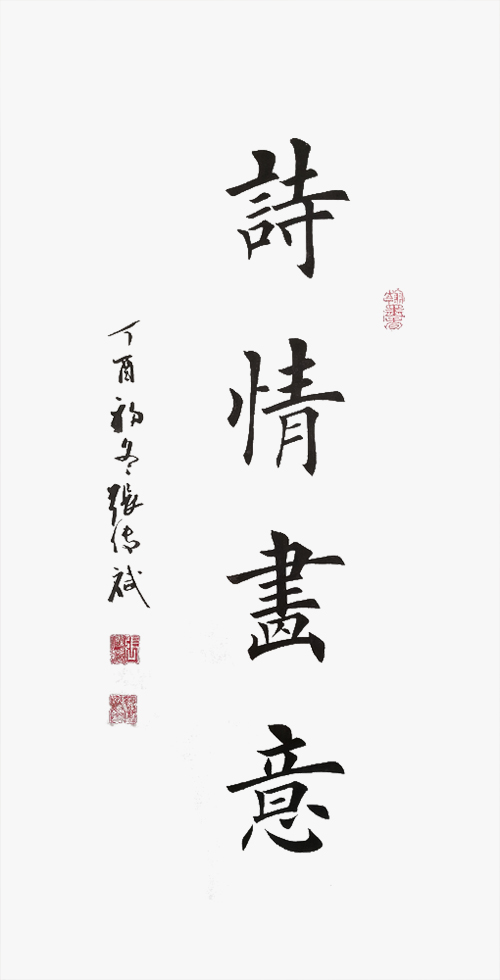 詩情畫意
丁酉初冬張傳斌